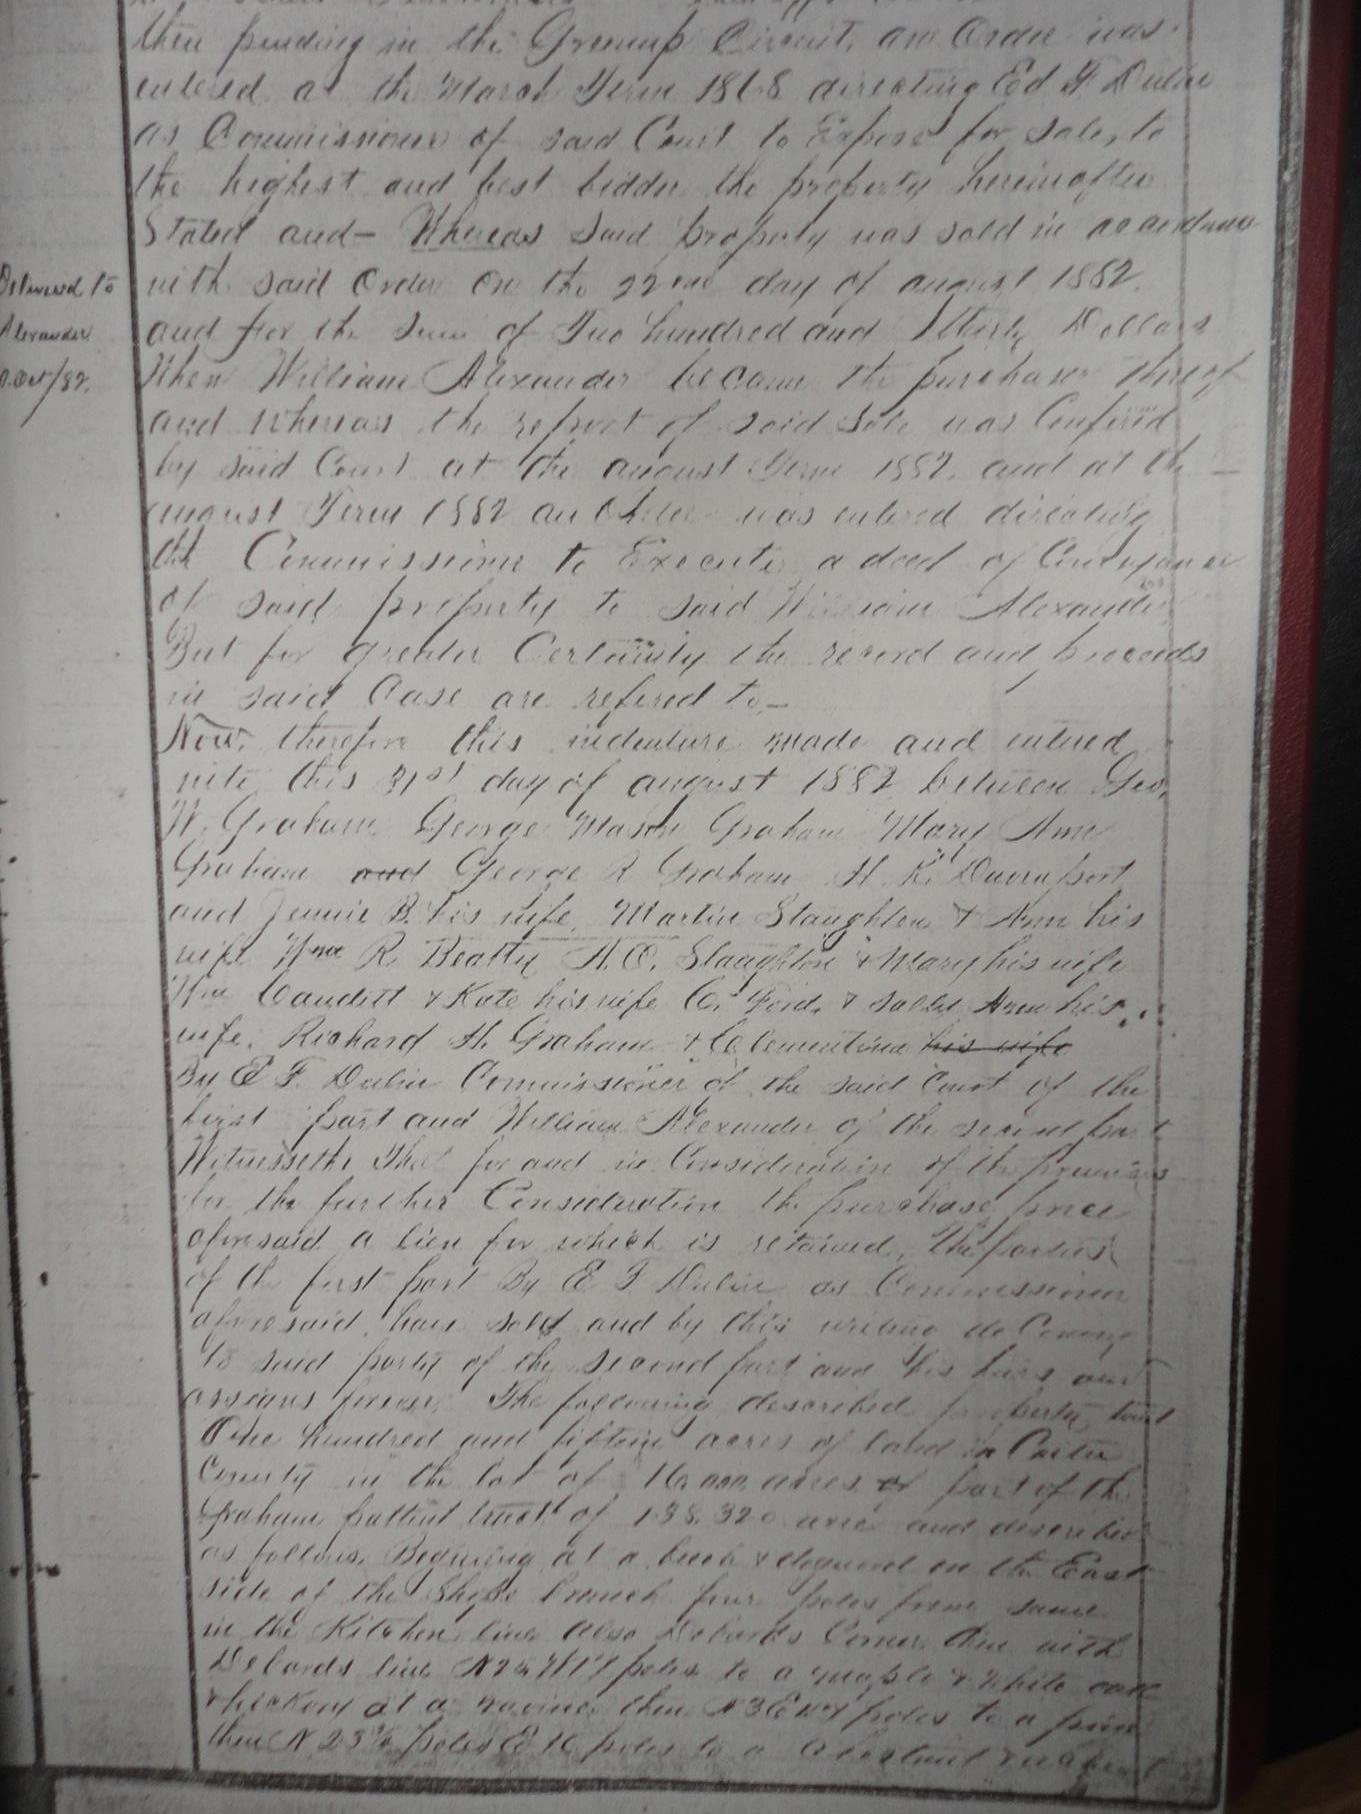 then pending in the Greenup Circuit, an Order was
entered at the March Term 1868 directing Ed F. Dulin
as Commissioner of said Court to Expose for sale, to
the highest and best bidder the property hereinafter
Stated and - Whereas Said property was sold in accordance
Delivered to
with said Order on the 22nd day of august 1882.
and for the Sum of Two hundred and Thirty Dollars
Alexander
Oct/82.
When William Alexander became the purchaser thereof
and whereas the report of said Sale was Confired
by said Court at the august Term 1882. and at the -
august Term 1882 an Order was entered directing
Commissioner to Execute a deed of Conveyance
of said property to said William Alexander
But for greater Certainty the record and proceeds
in said Case are refered to -
Now, therefore this indenture made and entered
into this 31st day of august 1882 between Geo.
W. Graham George Mason Graham Mary Ann
Graham and George R Graham H. K. Davenport
and Jennie B. his wife, Martin Slaughter & Ann his
wife Wm R. Beatty A. O. Slaughter & Mary his wife
Wm Caudett & Kate his wife C. Ford, & Salley Ann his
wife. Richard H. Graham & Clementine his wife
By E F. Dulin Commissioner of the said Court of the
first part and William Alexander of the second part
Witnesseth, That for and in Consideration of the premises
for the further Consideration the purchase price
aforesaid a lien for which is retained, The parties
of the first part By E F Dulin as Commissioner
aforesaid, have sold and by this writing do Convey
to said party of the second part and his heirs and
assigns forever, The following described property, towit
One hundred and fifteen acres of land in Carter
County in the lot of 16,000 acres of part of the
Graham pattent tract of 138.320 acres and described
as follows, Begining at a beech & dogwood on the East
side of the Shope branch four poles from same
in the Kitchen line also Debords Corner, thn with
Debords line poles to a maple & White oak
& hickory at a ravine then N 3 E poles to a pine
then N 23 poles E 16 poles to a Chestnut